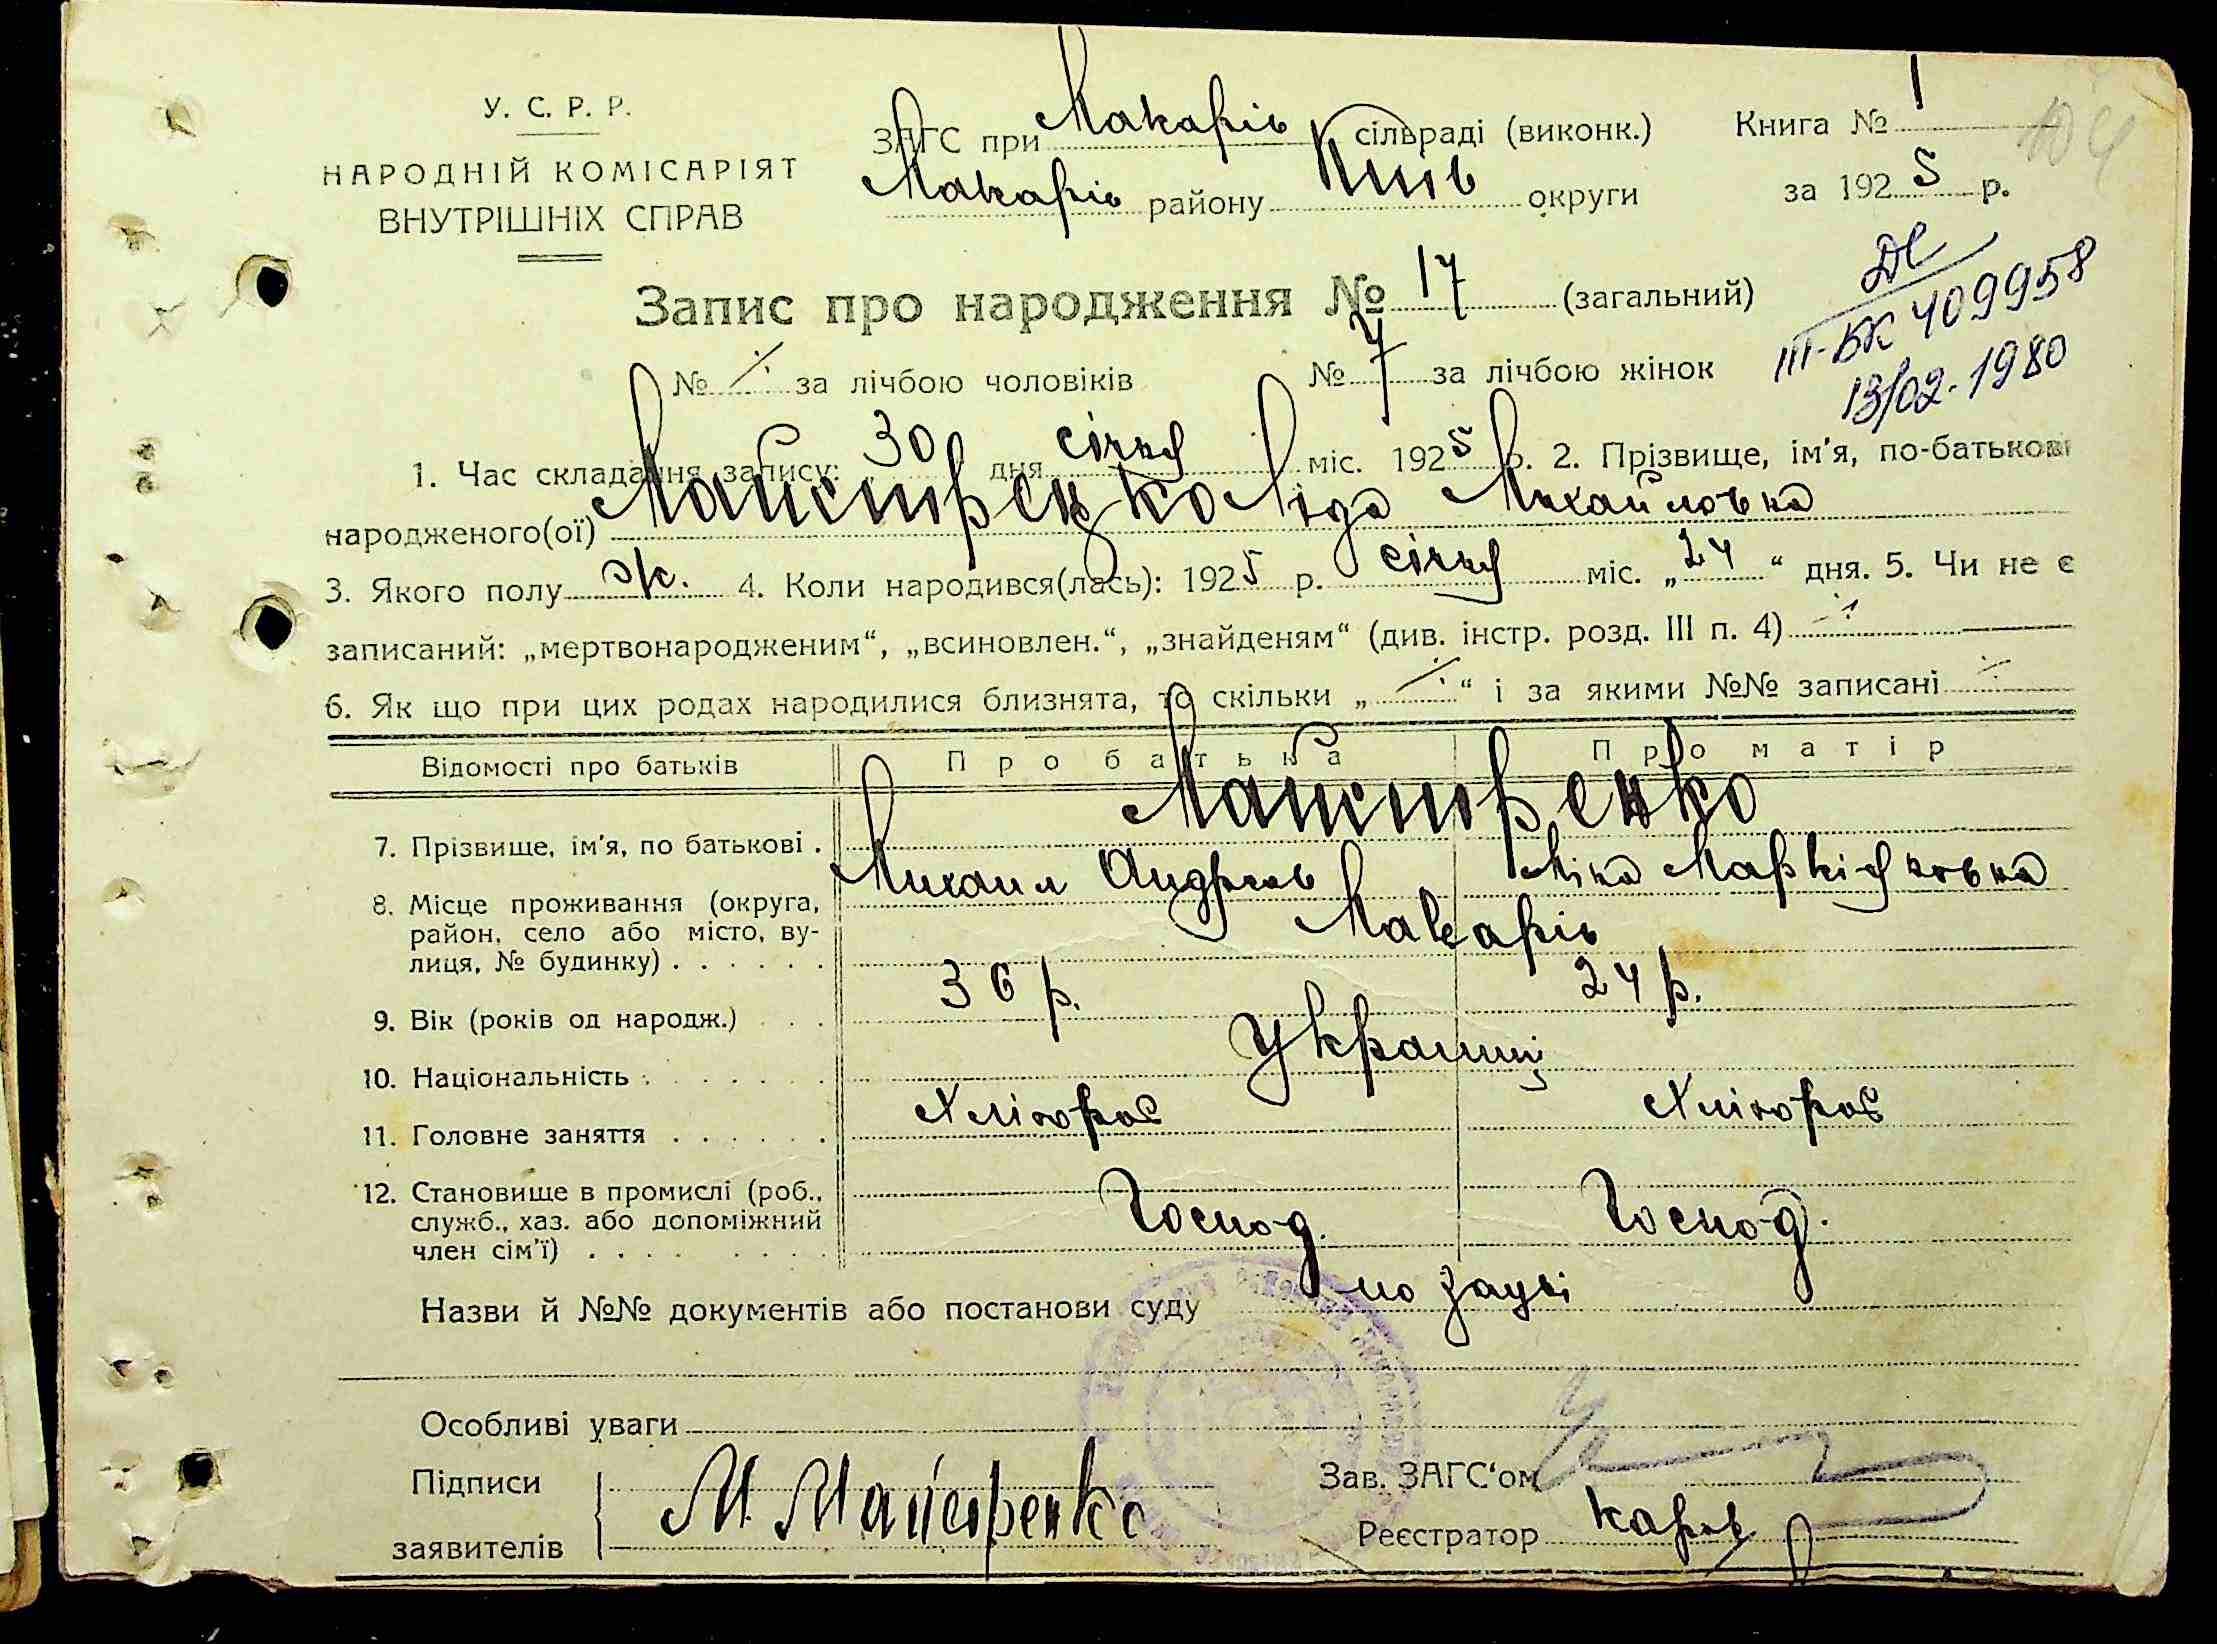 У. С. Р. Р.
НАРОДНІЙ КОМІСАРІЯТ
ВНУТРІШНІХ СПРАВ
ЗАГС при Макарів сільраді (виконк.) Книга № 1
Макарів району Київ округи за 1925 р.
104
Запис про народження № 17 (загальний)
III-БК 409958
13/02-1980
№ ⁒ за лічбою чоловіків № 7 за лічбою жінок
1. Час складання запису: 30 дня січня міс. 1925 р. 2. Прізвище, ім'я, по-батькові
народженого(ої) Майстренко Ліда Михайловна
3. Якого полу ж. 4. Коли народився(лась): 1925 р. січня міс. „24“ дня. 5. Чи не є
записаний: „мертвонародженим“, „всиновлен.“, „знайденям“ (див. інстр. розд. III п. 4) ⁒
6. Як що при цих родах народилися близнята, то скільки „⁒“ і за якими №№ записані ⁒
Відомості про батьків Про батька Про матір
7. Прізвище, ім'я, по батькові . Майстренко
Михаил Андреев Міна
8. Місце проживання (округа,
район, село або місто, ву-
лиця, № будинку) . . . . . . Макарів
9. Вік (років од народж.) . . . 36 р. 24 р.
10. Національність . . . . . . . Українці
11. Головне заняття . . . . . . Хлібороб Хлібороб
12. Становище в промислі (роб.,
служб., хаз. або допоміжний
член сім'ї) . . . . . . . . . Господ. Господ.
Назви й №№ документів або постанови суду по заяві
Особливі уваги
Підписи
заявителів
М. Майстренко
Зав. ЗАГС'ом
Реєстратор